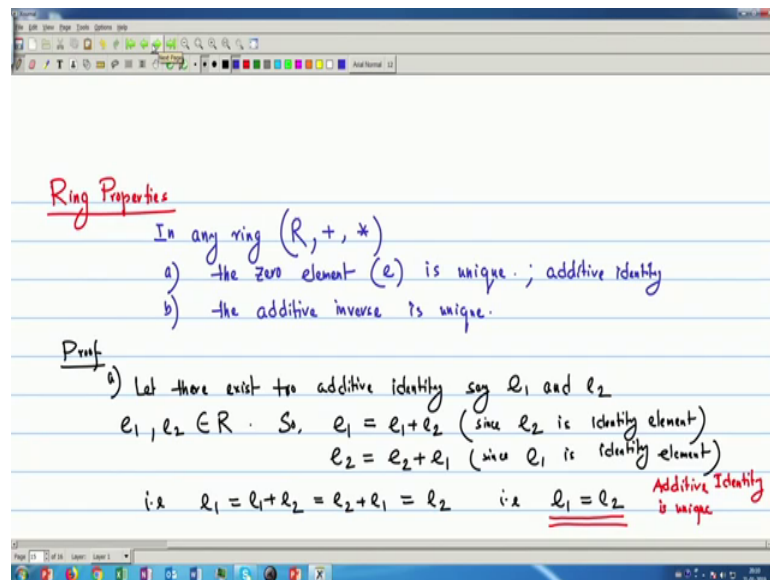 Journal
File Edit View Page Tools Options Help
Next Page
Arial Normal 12
Ring Properties
In any ring (R, +, *)
a) the zero element (e) is unique. ; additive identity
b) the additive inverse is unique.
Proof
a) Let there exist two additive identity say e₁ and e₂
e₁, e₂ ∈ R. So, e₁ = e₁+e₂ (since e₂ is identity element)
e₂ = e₂+e₁ (since e₁ is identity element)
i.e e₁ = e₁+e₂ = e₂+e₁ = e₂ i.e e₁ = e₂ Additive Identity
is unique
Page 15 of 16 Layer: Layer 1